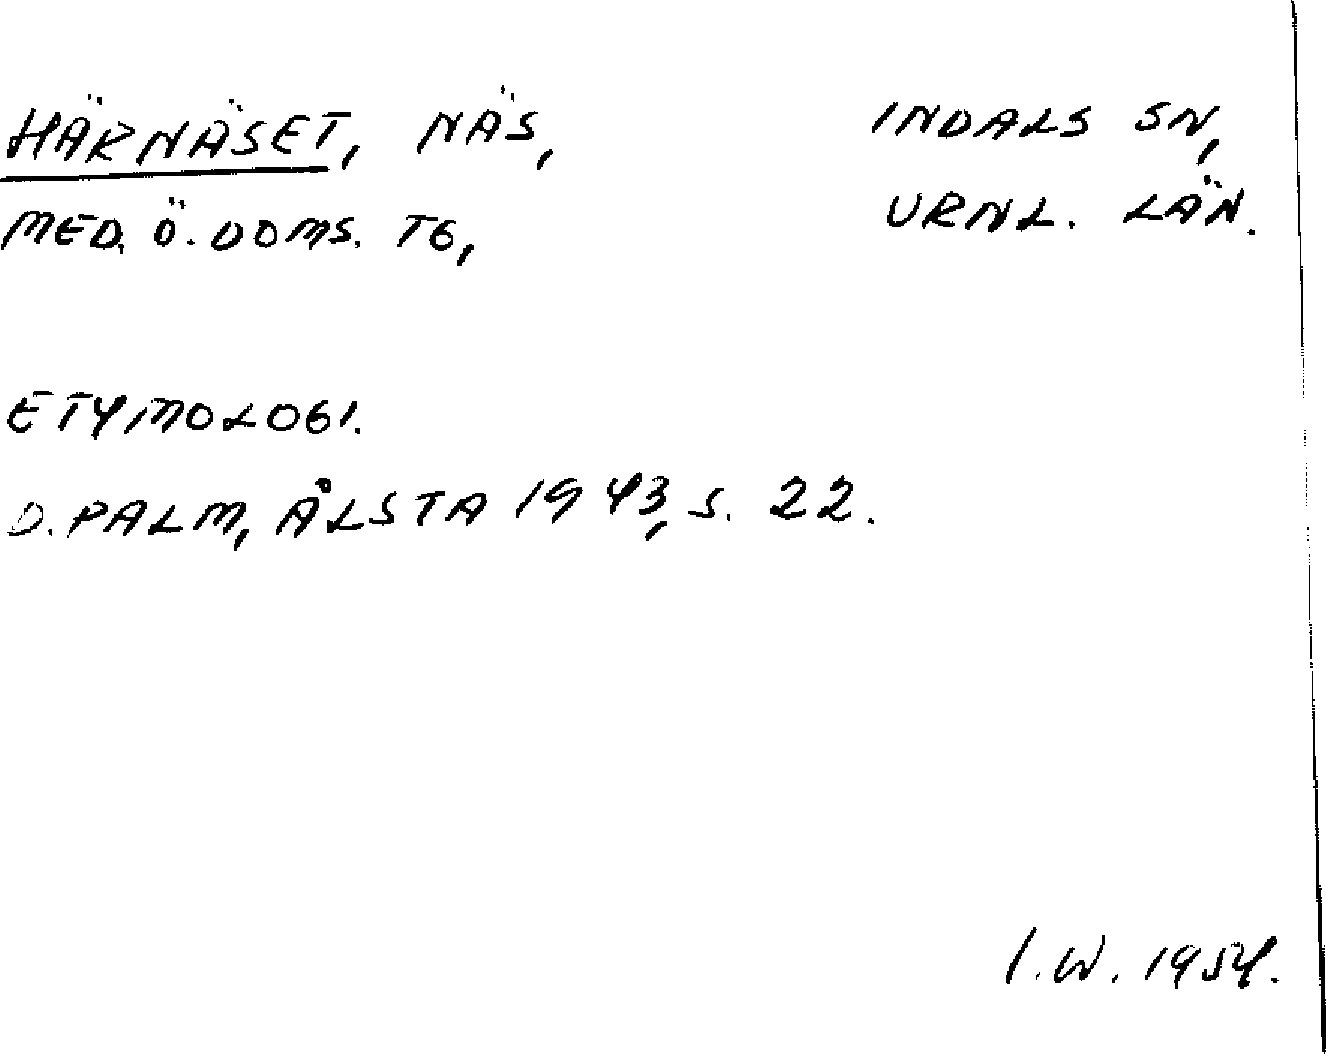 HÄRNÄSET, NÄS, INDALS SN,
MED. Ö. DOMS. TG, VRNL. LÄN.
ETYMOLOGI.
D. PALM, ÄLSTA 1943, S. 22.
I.W. 1954.